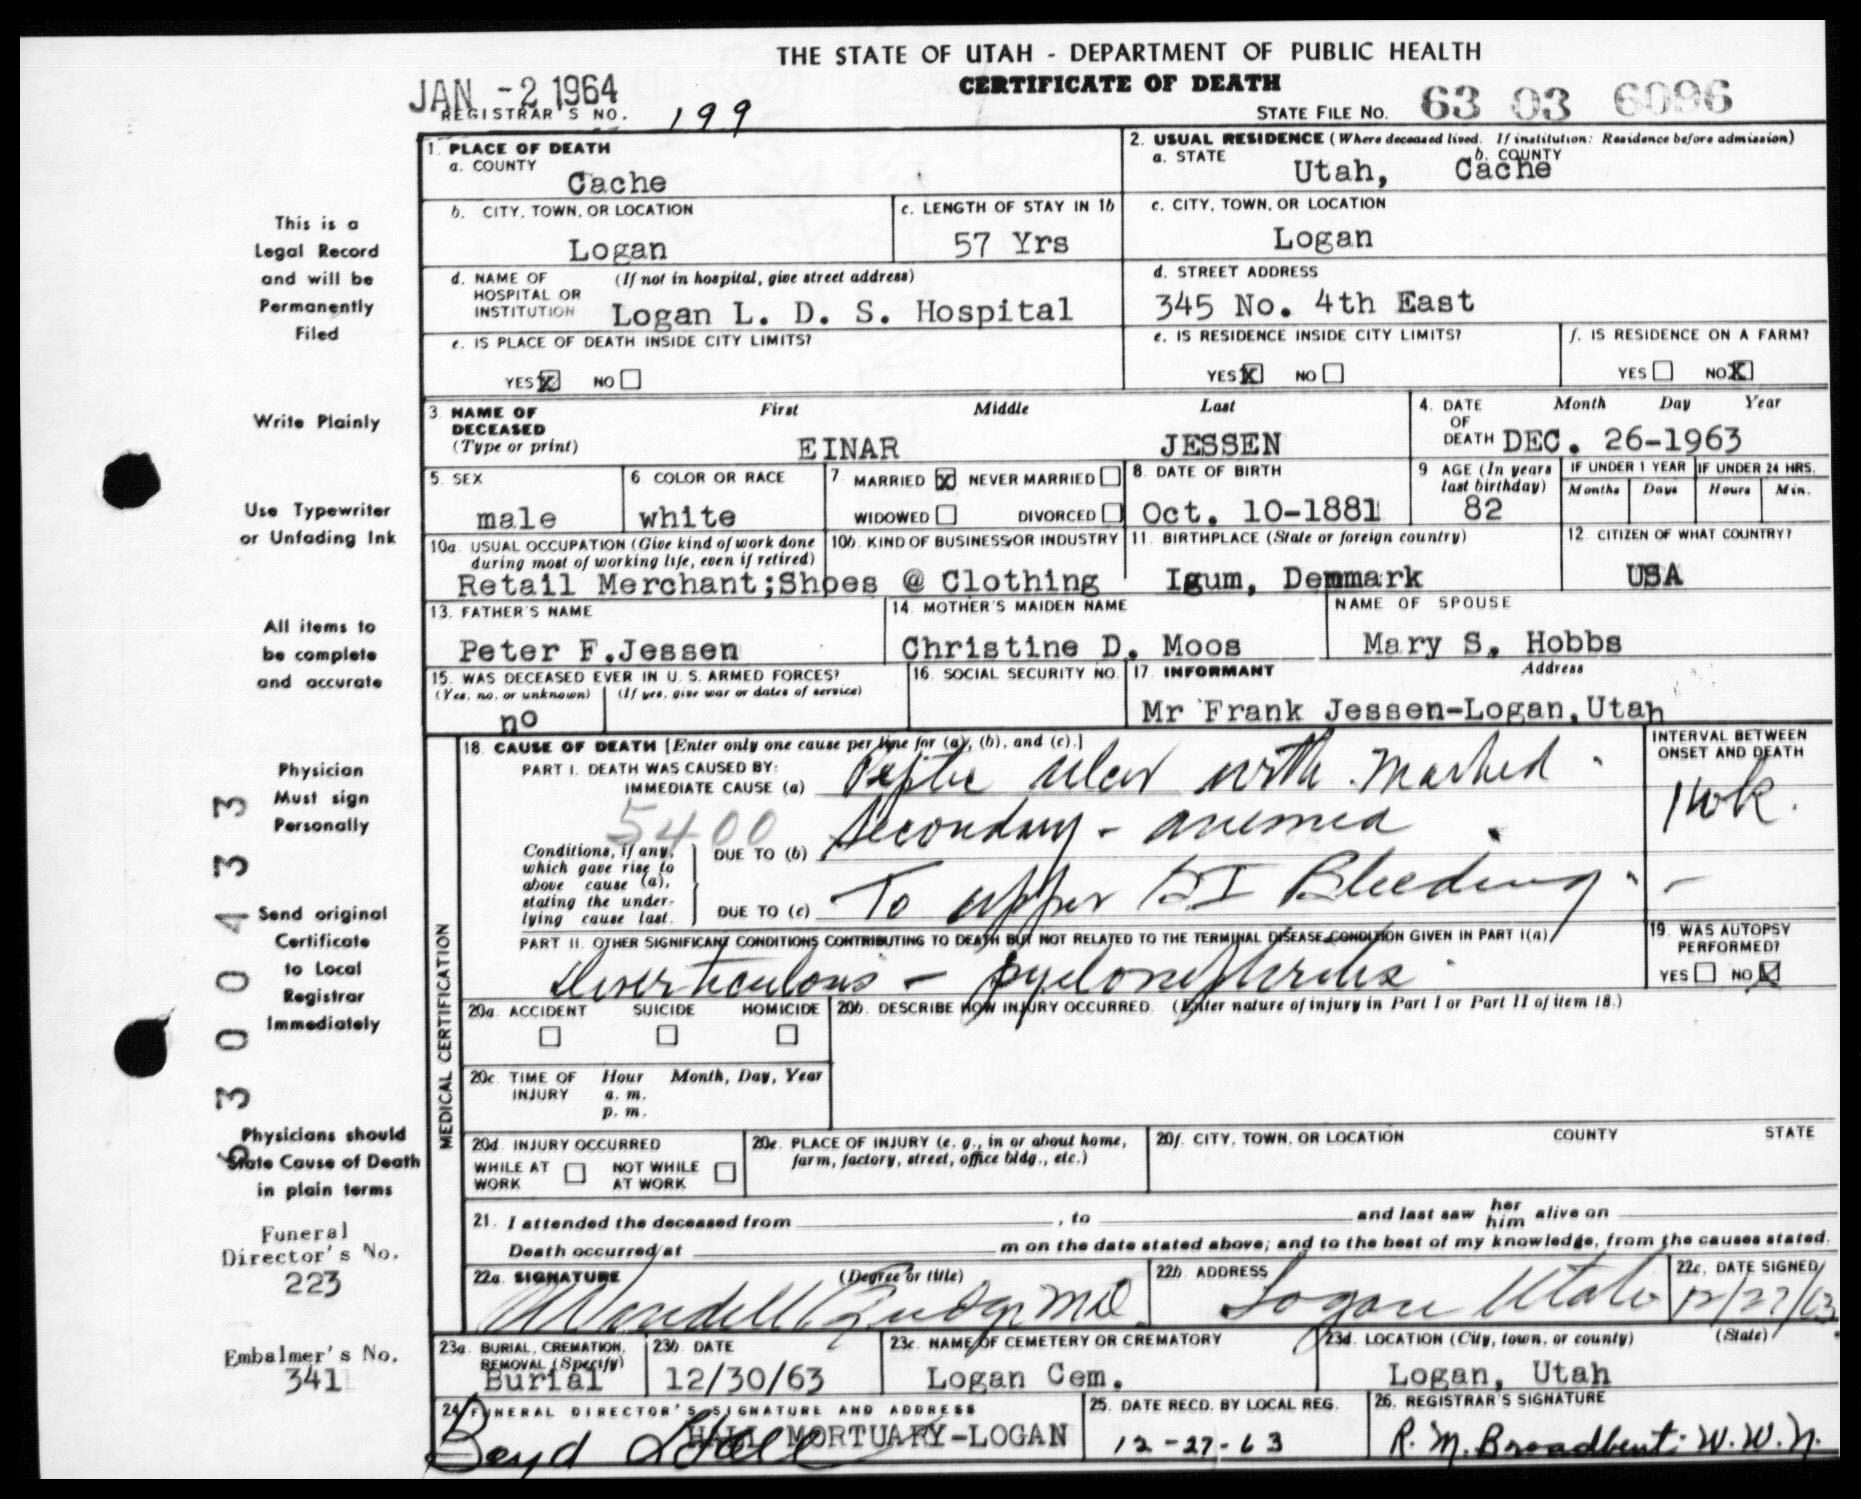 THE STATE OF UTAH - DEPARTMENT OF PUBLIC HEALTH
CERTIFICATE OF DEATH
JAN -2 1964
REGISTRAR'S NO. 199
STATE FILE NO. 63 03 6096
This is a
Legal Record
and will be
Permanently
Filed
Write Plainly
Use Typewriter
or Unfading Ink
All items to
be complete
and accurate
Physician
Must sign
Personally
Send original
Certificate
to Local
Registrar
Immediately
Physicians should
State Cause of Death
in plain terms
Funeral
Director's No.
223
Embalmer's No.
341
63004333
1. PLACE OF DEATH
a. COUNTY
Cache
2. USUAL RESIDENCE (Where deceased lived. If institution: Residence before admission)
a. STATE b. COUNTY
Utah, Cache
b. CITY, TOWN, OR LOCATION
Logan
c. LENGTH OF STAY IN 1b
57 Yrs
c. CITY, TOWN, OR LOCATION
Logan
d. NAME OF (If not in hospital, give street address)
HOSPITAL OR
INSTITUTION Logan L. D. S. Hospital
d. STREET ADDRESS
345 No. 4th East
e. IS PLACE OF DEATH INSIDE CITY LIMITS?
YES X NO
e. IS RESIDENCE INSIDE CITY LIMITS?
YES X NO
f. IS RESIDENCE ON A FARM?
YES NO X
3. NAME OF First Middle Last
DECEASED
(Type or print) EINAR JESSEN
4. DATE Month Day Year
OF
DEATH DEC. 26-1963
5. SEX
male
6. COLOR OR RACE
white
7. MARRIED X NEVER MARRIED
WIDOWED DIVORCED
8. DATE OF BIRTH
Oct. 10-1881
9 AGE (In years
last birthday)
82
IF UNDER 1 YEAR IF UNDER 24 HRS.
Months Days Hours Min.
10a. USUAL OCCUPATION (Give kind of work done
during most of working life, even if retired)
10b. KIND OF BUSINESS OR INDUSTRY
Retail Merchant;Shoes @ Clothing
11. BIRTHPLACE (State or foreign country)
Igum, Denmark
12. CITIZEN OF WHAT COUNTRY?
USA
13. FATHER'S NAME
Peter F.Jessen
14. MOTHER'S MAIDEN NAME
Christine D. Moos
NAME OF SPOUSE
Mary S. Hobbs
15. WAS DECEASED EVER IN U. S. ARMED FORCES?
(Yes, no, or unknown) (If yes, give war or dates of service)
no
16. SOCIAL SECURITY NO.
17. INFORMANT Address
Mr Frank Jessen-Logan, Utah
MEDICAL CERTIFICATION
18. CAUSE OF DEATH [Enter only one cause per line for (a), (b), and (c).]
PART I. DEATH WAS CAUSED BY:
IMMEDIATE CAUSE (a) Peptic ulcer with marked
5400
Conditions, if any,
which gave rise to
above cause (a),
stating the under-
lying cause last.
DUE TO (b) Secondary - anemia
DUE TO (c) To upper GI Bleeding
INTERVAL BETWEEN
ONSET AND DEATH
1 wk.
PART II. OTHER SIGNIFICANT CONDITIONS CONTRIBUTING TO DEATH BUT NOT RELATED TO THE TERMINAL DISEASE CONDITION GIVEN IN PART I(a)
Diverticulosis - pyelonephritis
19. WAS AUTOPSY
PERFORMED?
YES NO X
20a. ACCIDENT SUICIDE HOMICIDE
20b. DESCRIBE HOW INJURY OCCURRED. (Enter nature of injury in Part I or Part II of item 18.)
20c. TIME OF Hour Month, Day, Year
INJURY a. m.
p. m.
20d. INJURY OCCURRED
WHILE AT WORK NOT WHILE AT WORK
20e. PLACE OF INJURY (e. g., in or about home,
farm, factory, street, office bldg., etc.)
20f. CITY, TOWN, OR LOCATION COUNTY STATE
21. I attended the deceased from , to and last saw her him alive on
Death occurred at m on the date stated above; and to the best of my knowledge, from the causes stated.
22a. SIGNATURE (Degree or title)
Wendell MD
22b. ADDRESS
Logan Utah
22c. DATE SIGNED
12/27/63
23a. BURIAL, CREMATION,
REMOVAL (Specify)
Burial
23b. DATE
12/30/63
23c. NAME OF CEMETERY OR CREMATORY
Logan Cem.
23d. LOCATION (City, town, or county) (State)
Logan, Utah
24. FUNERAL DIRECTOR'S SIGNATURE AND ADDRESS
Boyd Hall HALL MORTUARY-LOGAN
25. DATE RECD. BY LOCAL REG.
12-27-63
26. REGISTRAR'S SIGNATURE
R. M. Broadbent W.W.N.